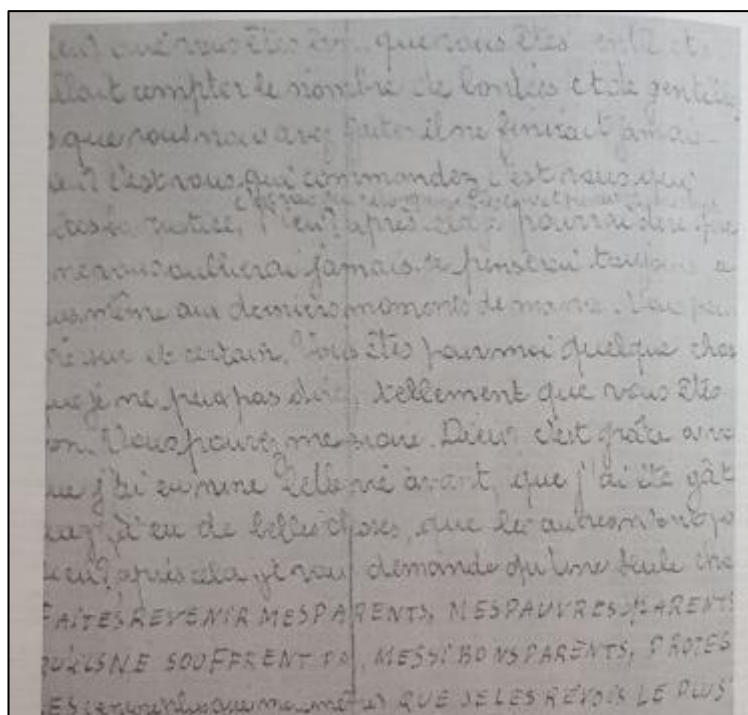 que vous êtes bon, que vous êtes et
allait compter le nombre de bontées et de gentille
que vous nous avez faites il ne finirait jamais
c'est vous qui commandez c'est vous qui
êtes la justice,
après cela pourrai dire que
ne vous oublierai jamais. Je penserai toujours a
us même aux derniers moments de ma vie. Vous pou
sur et certain. Vous êtes pour moi quelque chos
ue je ne peux pas dire, tellement que vous êtes
on. Vous pouvez me croire. Dieu? c'est grâce a vo
ue j'ai eu une belle vie avant, que j'ai été gât
eu de belles choses, que les autres n'ont pa
ieu? après cela je vous demande qu'une seule cho
FAITES REVENIR MES PARENTS, MES PAUVRES PARENTS
QU'ILS NE SOUFFRENT PA, MES SI BONS PARENTS, PROTEG
LES (encore plus que moi-même) QUE JE LES REVOIS LE PLUS